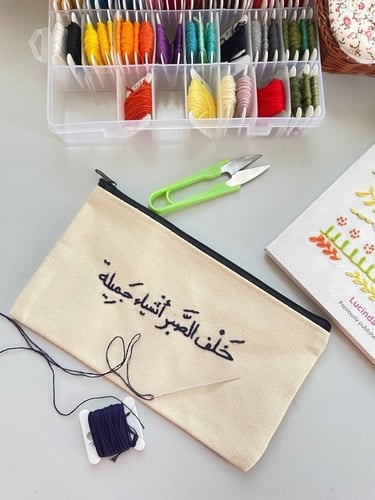 خَلْف الصَّبر أشياء جَميلة
Lucinda
Previously publishe